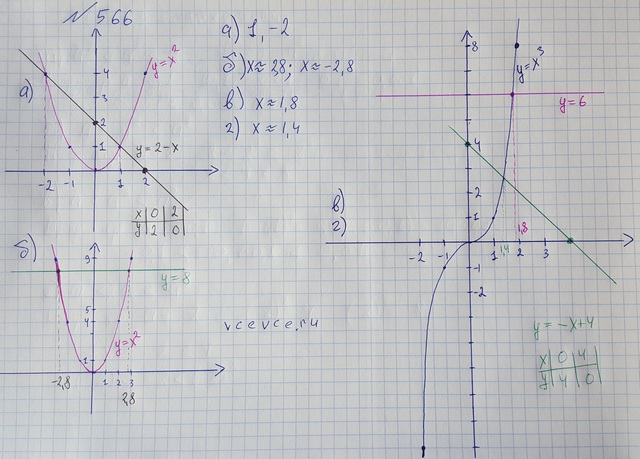 №566
а) 1, -2
б) x≈2,8; x≈-2,8
в) x≈1,8
г) x≈1,4
а)
y=x²
4
3
2
1
y=2-x
-2 -1 1 2
x 0 2
y 2 0
б)
9
y=8
5
4
y=x²
1
-2,8 1 2 3
2,8
vcevce.ru
8
y=x³
y=6
4
2
1
в)
г)
1,8
-2 -1 1 1,4 2 3
-1
-2
y=-x+4
x 0 4
y 4 0